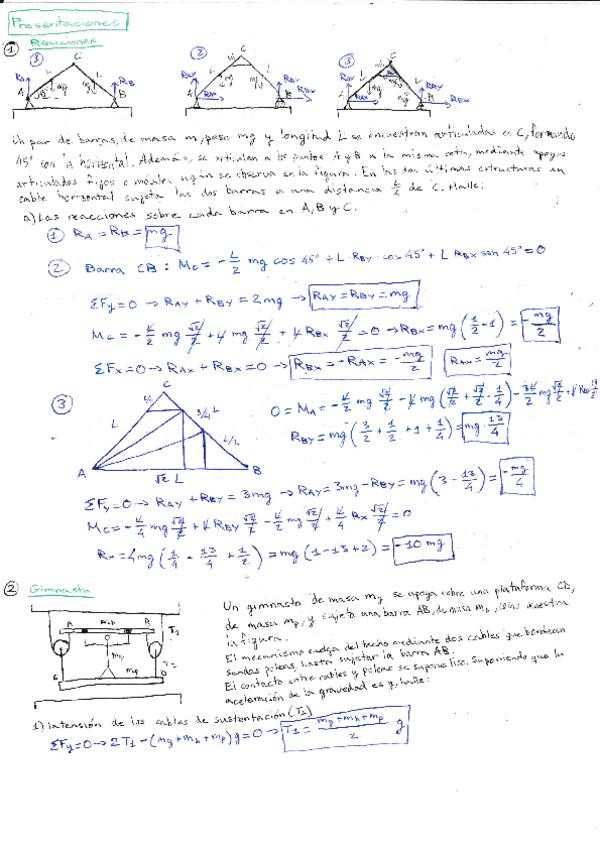 Presentaciones
① Reacciones
① ② ③
C C C
A B
Un par de barras, de masa m, peso mg y longitud L se encuentran articuladas en C, formando
45° con la horizontal. Además, se articulan a los puntos A y B a la misma cota, mediante apoyos
articulados fijos o móviles según se observa en la figura. En las dos últimas estructuras un
cable horizontal sujeta las dos barras a una distancia L/4 de C. Halle:
a) Las reacciones sobre cada barra en A, B y C.
① RA = RB = mg
② Barra CB: Mc = -L/2 mg cos 45° + L·RBY·cos 45° + L RBX sen 45° = 0
ΣFy=0 → RAY + RBY = 2mg → RAY = RBY = mg
Mc = -L/2 mg √2/2 + L mg √2/2 + L RBX √2/2 = 0 → RBX = mg(1/2 - 1) = -mg/2
ΣFx=0 → RAX + RBX = 0 → RBX = -RAX = -mg/2 RAX = mg/2
③
C
L 3/4 L L/2
A B
√2 L
0 = MA = -L/2 mg √2/2 - L mg (√2/2 + √2/2 · 1/4) - 3L/2 mg √2/2
RBY = mg(3/2 + 1/2 + 1 + 1/4) = mg · 13/4
ΣFy=0 → RAY + RBY = 3mg → RAY = 3mg - RBY = mg(3 - 13/4) = -mg/4
Mc = -L/4 mg √2/2 + L RBY √2/2 - L/2 mg √2/2 + L/4 Rx √2/2 = 0
Rx = 4mg(1/4 - 13/4 + 1/2) = mg(1-13+2) = -10 mg
② Gimnasta
A B T2
T1
C D
Un gimnasta de masa mg se apoya sobre una plataforma CD,
de masa mp, y sujeta una barra AB, de masa mb, como muestra
la figura.
El mecanismo cuelga del techo mediante dos cables que bordean
sendas poleas, hasta sujetar la barra AB.
El contacto entre cables y poleas se supone liso. Suponiendo que la
aceleración de la gravedad es g, halle:
1) la tensión de los cables de sustentación (T1)
ΣFy=0 → 2T1 - (mg+mb+mp)g = 0 → T1 = mg+mb+mp/2 g